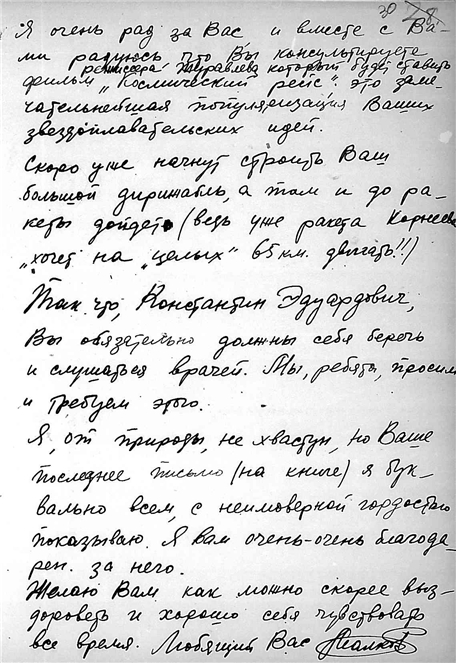 30
Я очень рад за Вас и вместе с Ва-
ми радуюсь что Вы консультируете
режиссера Журавлева который будет ставить
фильм „Космический рейс". это заме-
чательнейшая популяризация Ваших
звездоплавательских идей.
Скоро уже начнут строить Ваш
большой дирижабль, а там и до ра-
кеты дойдет (ведь уже ракета Корнеева
„хочет на „целых" 65 км. двигать!!)
Так что, Константин Эдуардович,
Вы обязательно должны себя беречь
и слушаться врачей. Мы, ребята, просим
и требуем этого.
Я, от природы, не хвастун, но Ваше
последнее письмо (на книге) я бук-
вально всем, с неимоверной гордостью
показываю. Я вам очень-очень благода-
рен. за него.
Желаю Вам как можно скорее выз-
дороветь и хорошо себя чувствовать
все время. Любящий Вас